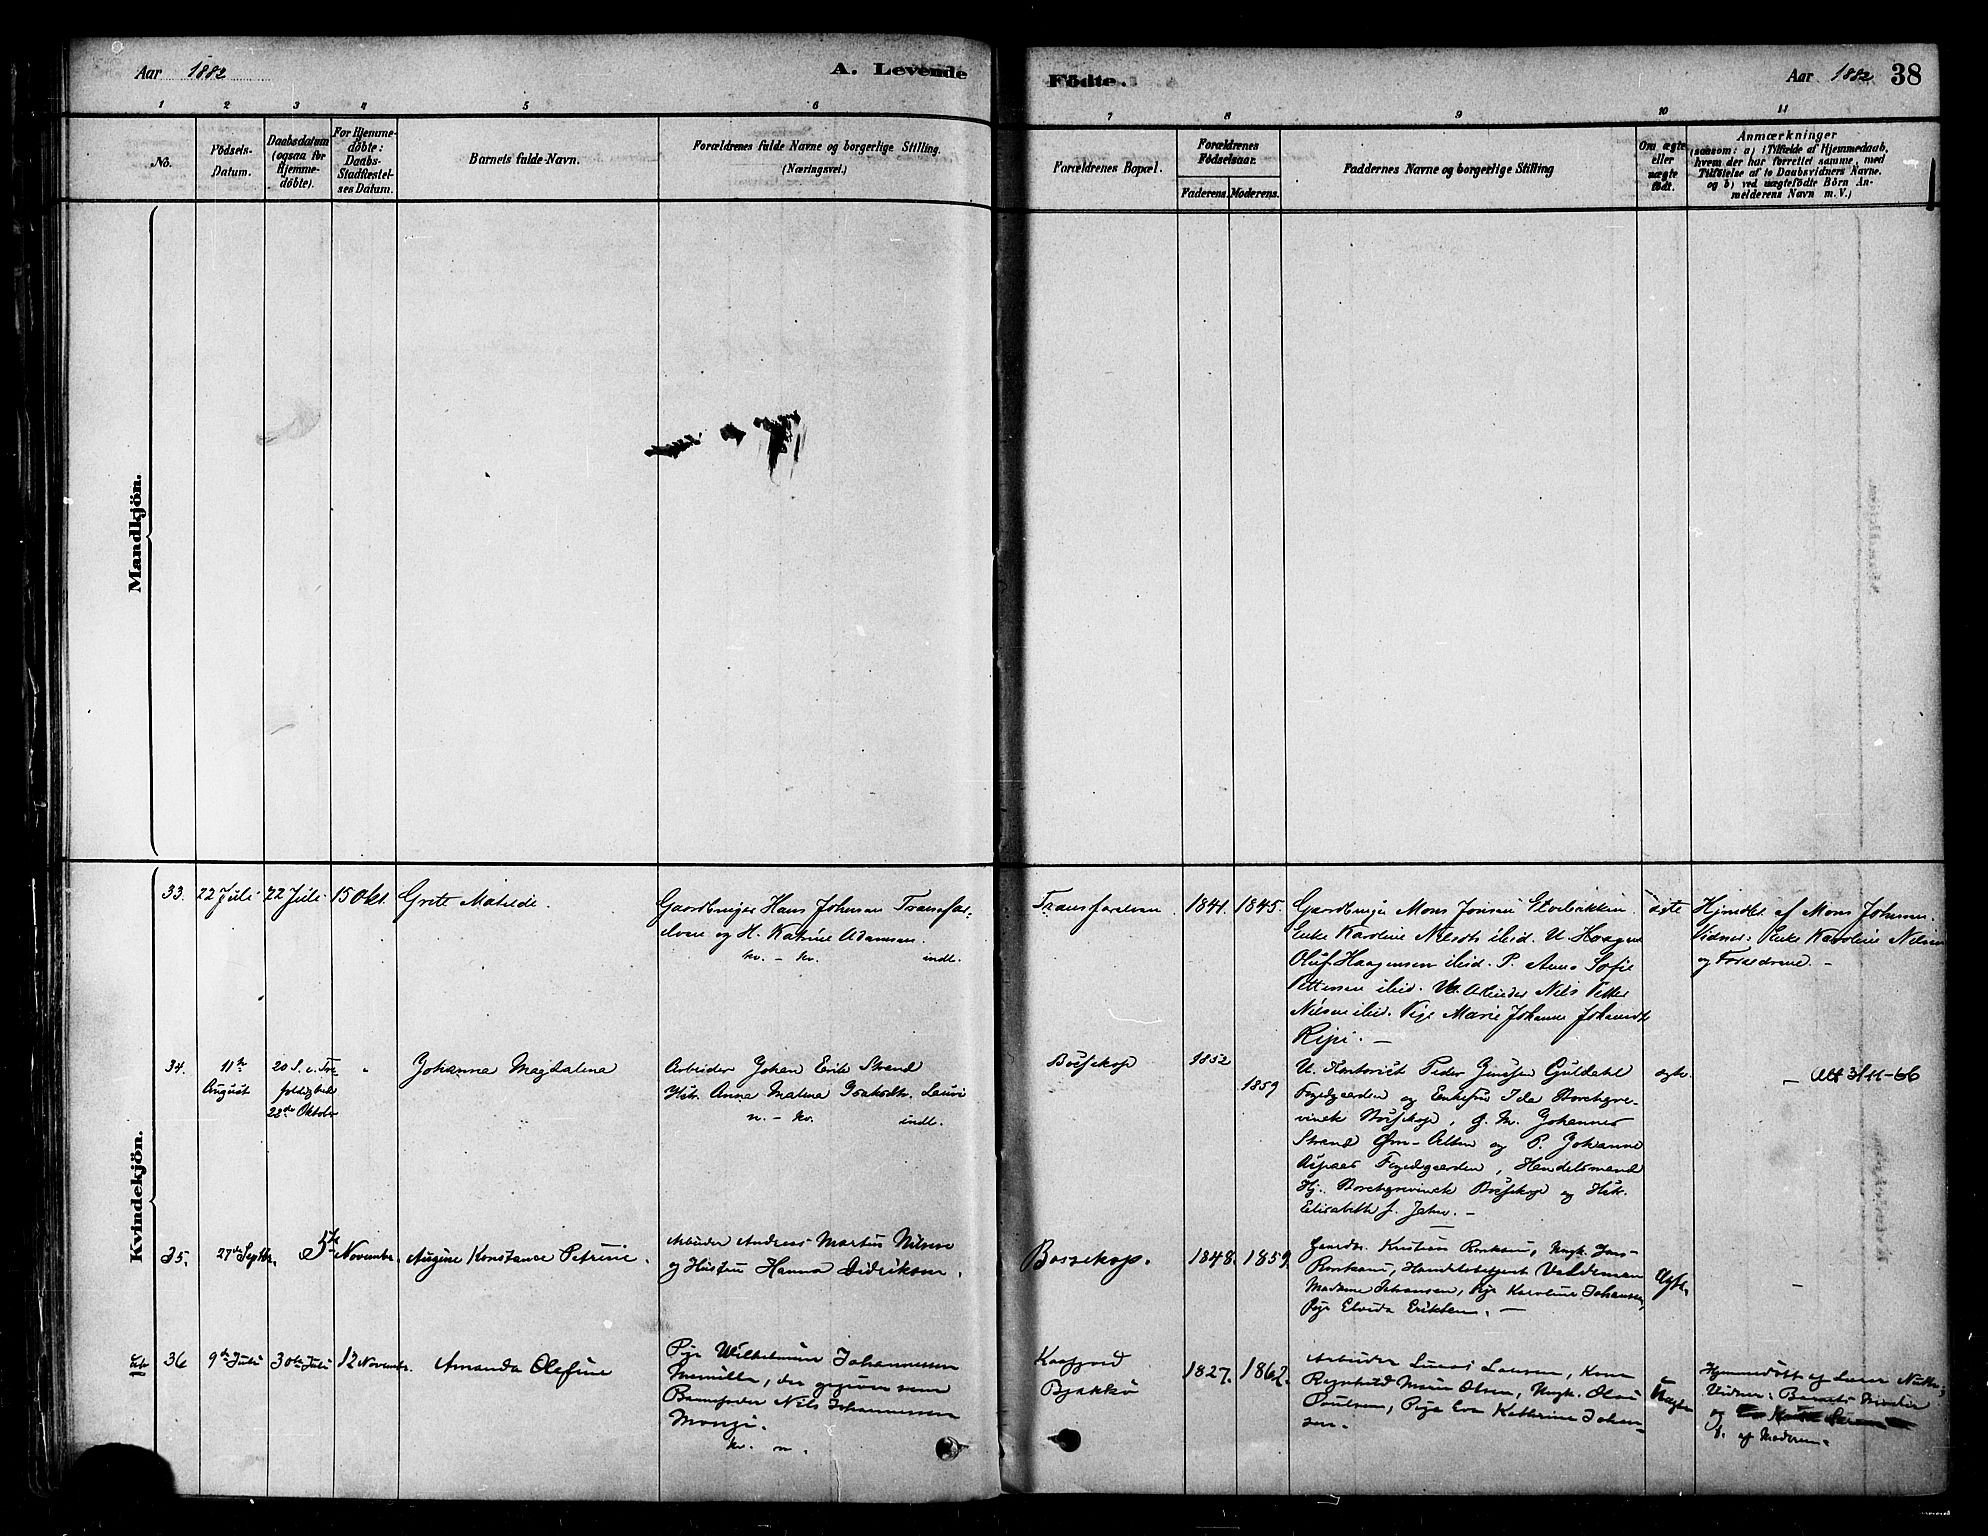 Aar 1882
A. Levende
Födte.
Aar 1882 38
1 2 3 4 5 6 7 8 9 10 11
No.
Födsels-
Datum.
Daabsdatum
(ogsaa for
Hjemme-
døbte).
For Hjemme-
døbte:
Daabs-
Stadfæstel-
ses Datum.
Barnets fulde Navn.
Forældrenes fulde Navne og borgerlige Stilling.
(Næringsvei.)
Forældrenes Bopæl.
Forældrenes
Födselsaar.
Faderens. Moderens.
Faddernes Navne og borgerlige Stilling
Om ægte
eller
uægte
født.
Anmærkninger
(saasom: a) i Tilfælde af Hjemmedaab,
hvem der har forrettet samme, med
Tilføielse af to Daabsvidners Navne.
og b) ved uægtefødte Börn An-
melderens Navn m.V.)
Mandkjön.
Kvindekjön.
33. 22 Juli 22 Juli 15 Okt. Grete Matilde.
Gaardbruger Hans Johnsen Transfar-
elven og H. Katrine Adamsen.
kv. – kv. indl.
Transfarelven 1841. 1845.
Gaardbruger Mons Jonsen Elvebakken.
Enke Karoline Nilsdtr ibid. U. Haagen
Oluf Haagensen ibid. P. Anne Sofie
Pettersen ibid. Arbeider Nils Petter
Nilsen ibid. Pige Marie Johanne Johansdtr
Ripi. –
ægte
Hjmdbt. af Mons Johnsen.
Vidner: Enke Karoline Nilsen
og Forældrene. –
34. 11te
August
20 S. e. Tre-
foldighed
22de Oktober
"
Johanna Magdalena
Arbeider Johan Erik Strand
Hstr. Anna Malena Isaksdtr.
n. – kv. indl.
Bossekop 1852 1859
U. Kontorist Peder Jensen Guldahl
Fogedgaarden og Enkefru Ida Borchgre-
vinck Bossekop, G. M. Johannes
Strand Øvre-Alten og P. Johanne
Aspaas Fogedgaarden, Handelsmand
Hj. Borchgrevinck Bossekop og Hstr.
Elisabeth f. Jahn. –
ægte.
– Att 3/11-66
35. 27de Septbr. 5te Novembr. Augine Konstance Petrine.
Arbeider Andreas Martus Nilsen
og Hustru Hanna Didriksen.
Bossekop. 1848. 1859.
Gaardbr. Kristian, Ungk. Jens
, Handelsbetjent Valdemar
Madame Johansen, Pige Karoline Johansen,
Pige Elvida Eriksen. –
Ægte.
–
36 9de Juli 30te Juli 12 Novembr. Amanda Olefine
Pige Wilhelmine Johannessen
, der opgiver som
Barnefader Nils Johannessen
kv. n.
Kaafjord 1827. 1862.
Arbeider Lucas Larsen, Kone
Ragnhild Marie Olsen, Ungk. Olai
Poulsen, Pige Eva Kathrine Johan-
sen.
Uægte
Hjemmedøbt af Lærer
Vidner: Barnets Moder
og
af Moderen.